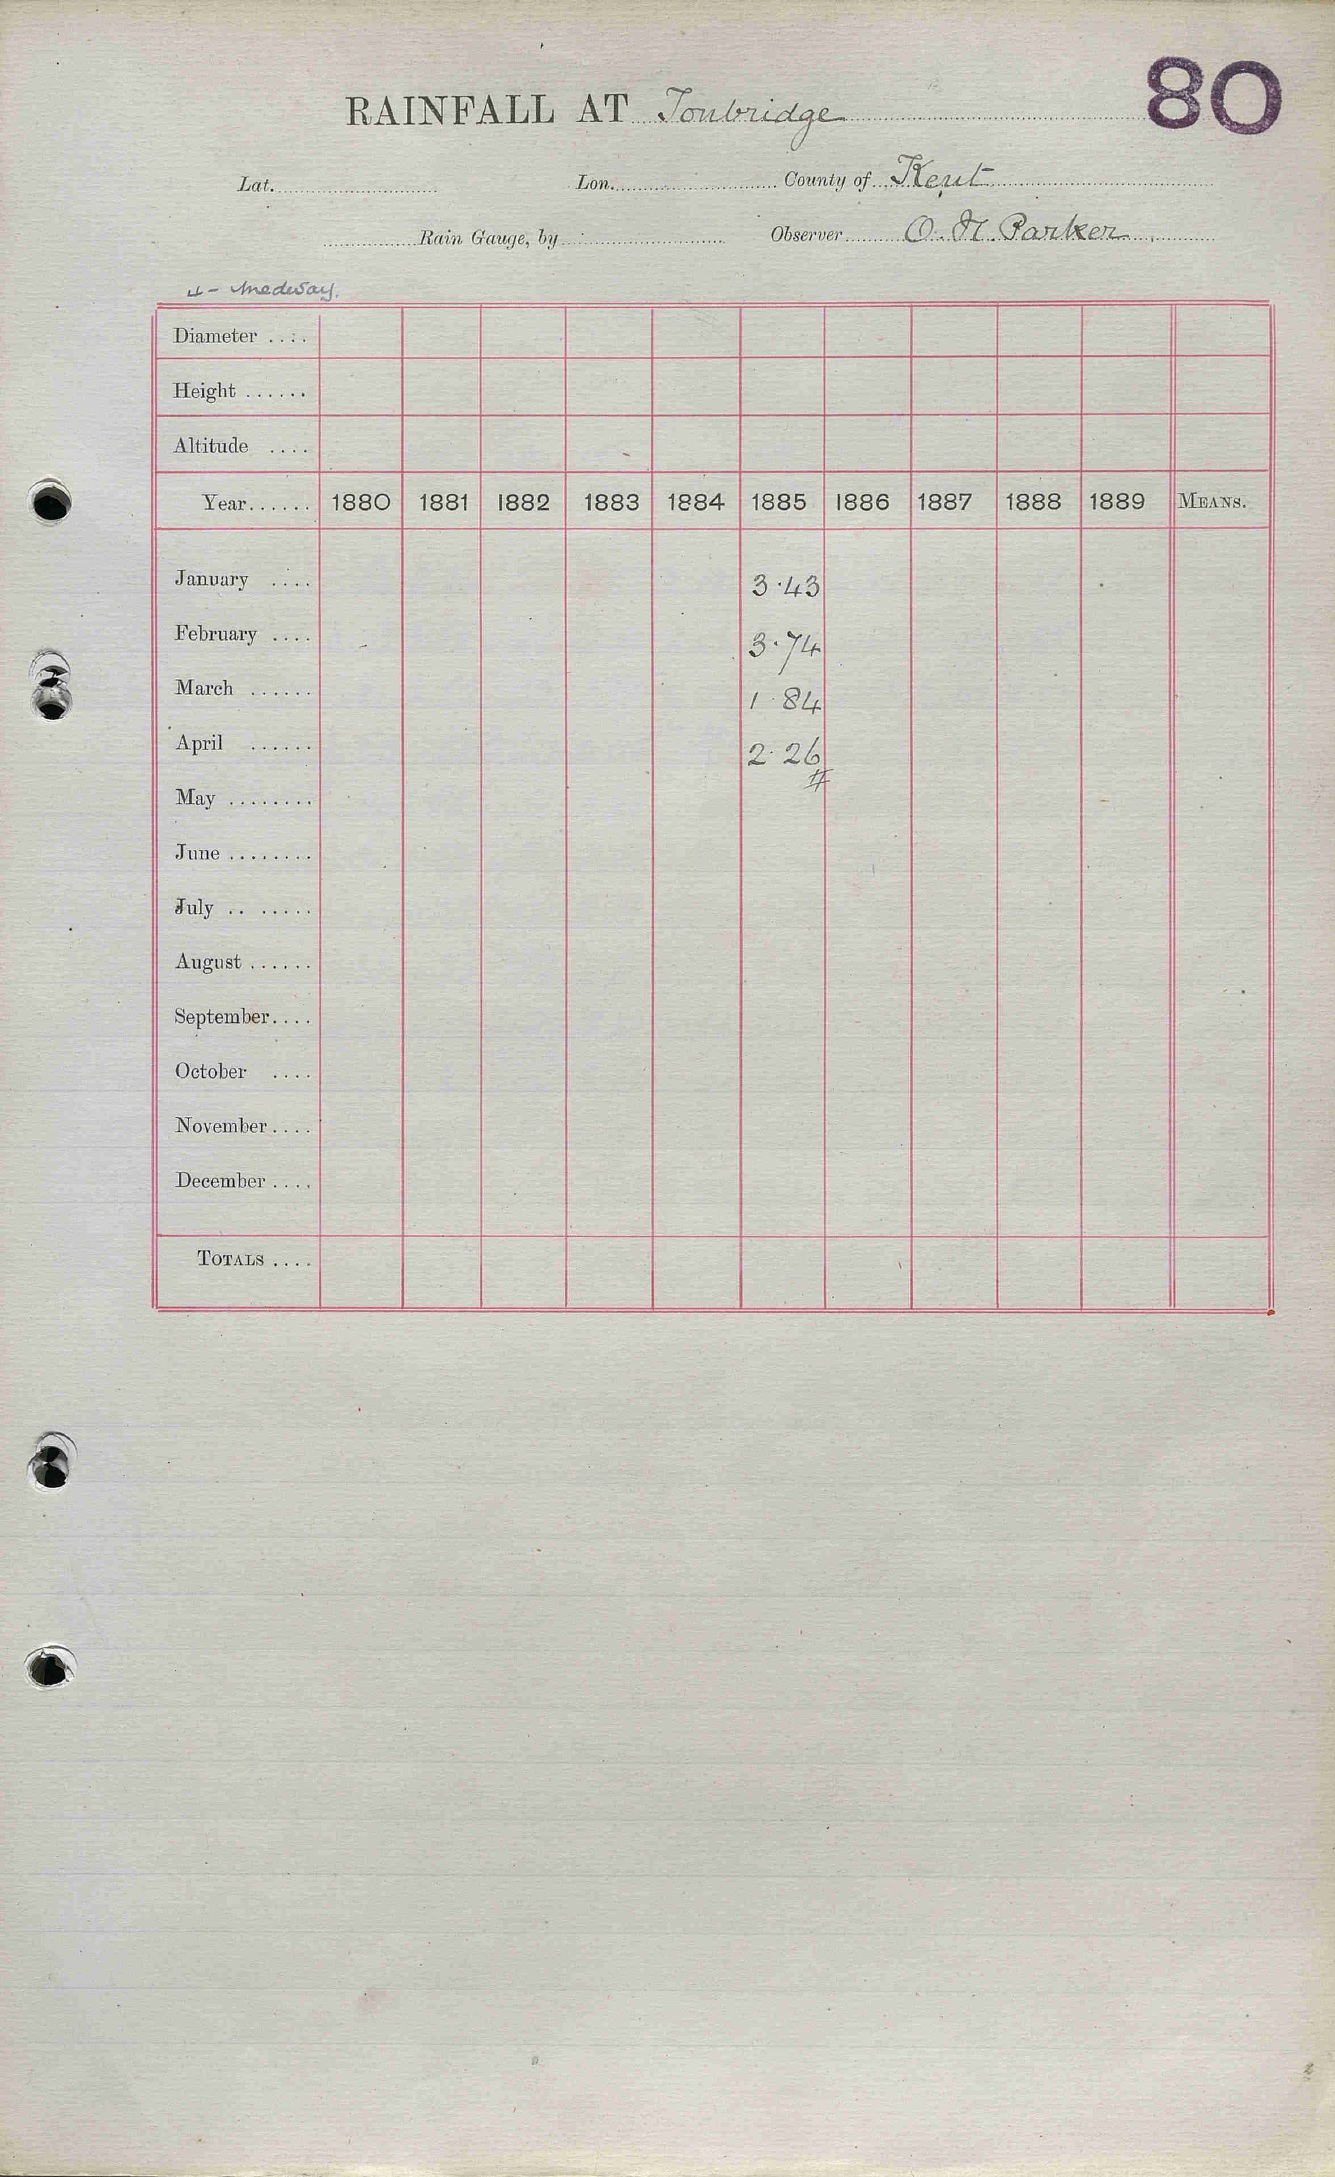 80
RAINFALL AT Tonbridge
Lat. Lon. County of Kent
Rain Gauge, by Observer O. H. Parker
4 - Medway.
Diameter ....
Height ......
Altitude ....
Year...... 1880 1881 1882 1883 1884 1885 1886 1887 1888 1889 MEANS.
January .... 3.43
February .... 3.74
March ...... 1 84
April ...... 2.26
#
May ........
June ........
July .. .....
August ......
September....
October ....
November....
December ....
TOTALS ....